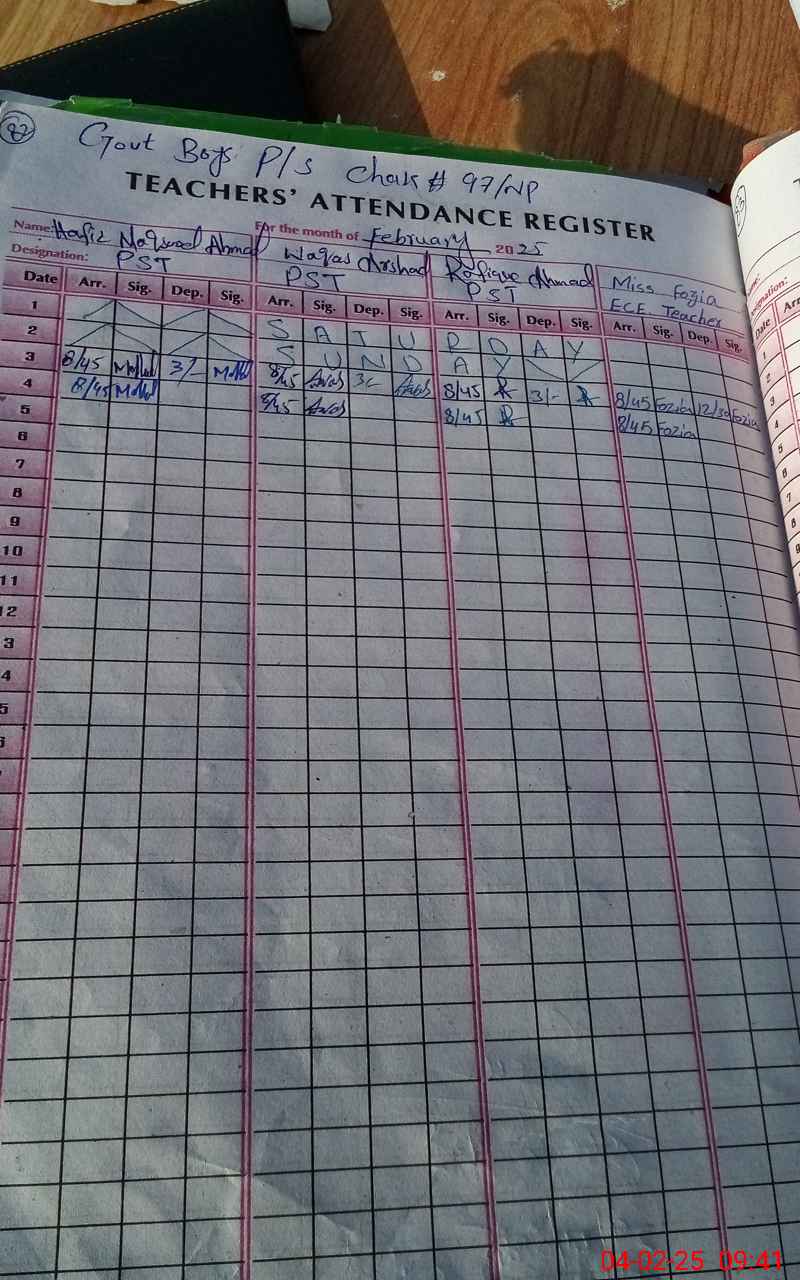 97
Govt Boys P/S Chak # 97/NP
TEACHERS' ATTENDANCE REGISTER
For the month of February 2025
Name: Hafiz Maqsood Ahmad Waqas Arshad Rafique Ahmad Miss Fozia
Designation: PST PST PST ECE Teacher
Date Arr. Sig. Dep. Sig. Arr. Sig. Dep. Sig. Arr. Sig. Dep. Sig. Arr. Sig. Dep. Sig.
1 S A T U R D A Y
2 S U N D A Y
3 8/45 3/- 8/45 3/- 8/45 3/- 8/45 Fozia 12/30 Fozia
4 8/45 8/45 8/45 8/45 Fozia
5
6
7
8
9
10
11
12
3
4
5
Date Arr
1
2
3
4
5
6
7
8
9
04-02-25 09:41